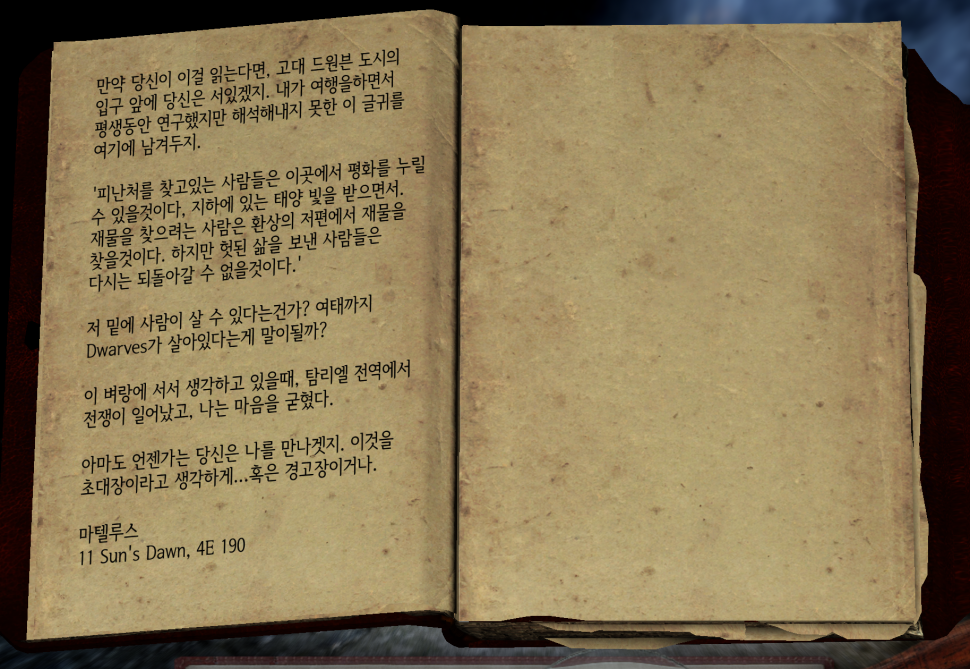 만약 당신이 이걸 읽는다면, 고대 드원븐 도시의
입구 앞에 당신은 서있겠지. 내가 여행을하면서
평생동안 연구했지만 해석해내지 못한 이 글귀를
여기에 남겨두지.
'피난처를 찾고있는 사람들은 이곳에서 평화를 누릴
수 있을것이다, 지하에 있는 태양 빛을 받으면서.
재물을 찾으려는 사람은 환상의 저편에서 재물을
찾을것이다. 하지만 헛된 삶을 보낸 사람들은
다시는 되돌아갈 수 없을것이다.'
저 밑에 사람이 살 수 있다는건가? 여태까지
Dwarves가 살아있다는게 말이될까?
이 벼랑에 서서 생각하고 있을때, 탐리엘 전역에서
전쟁이 일어났고, 나는 마음을 굳혔다.
아마도 언젠가는 당신은 나를 만나겟지. 이것을
초대장이라고 생각하게...혹은 경고장이거나.
마텔루스
11 Sun's Dawn, 4E 190